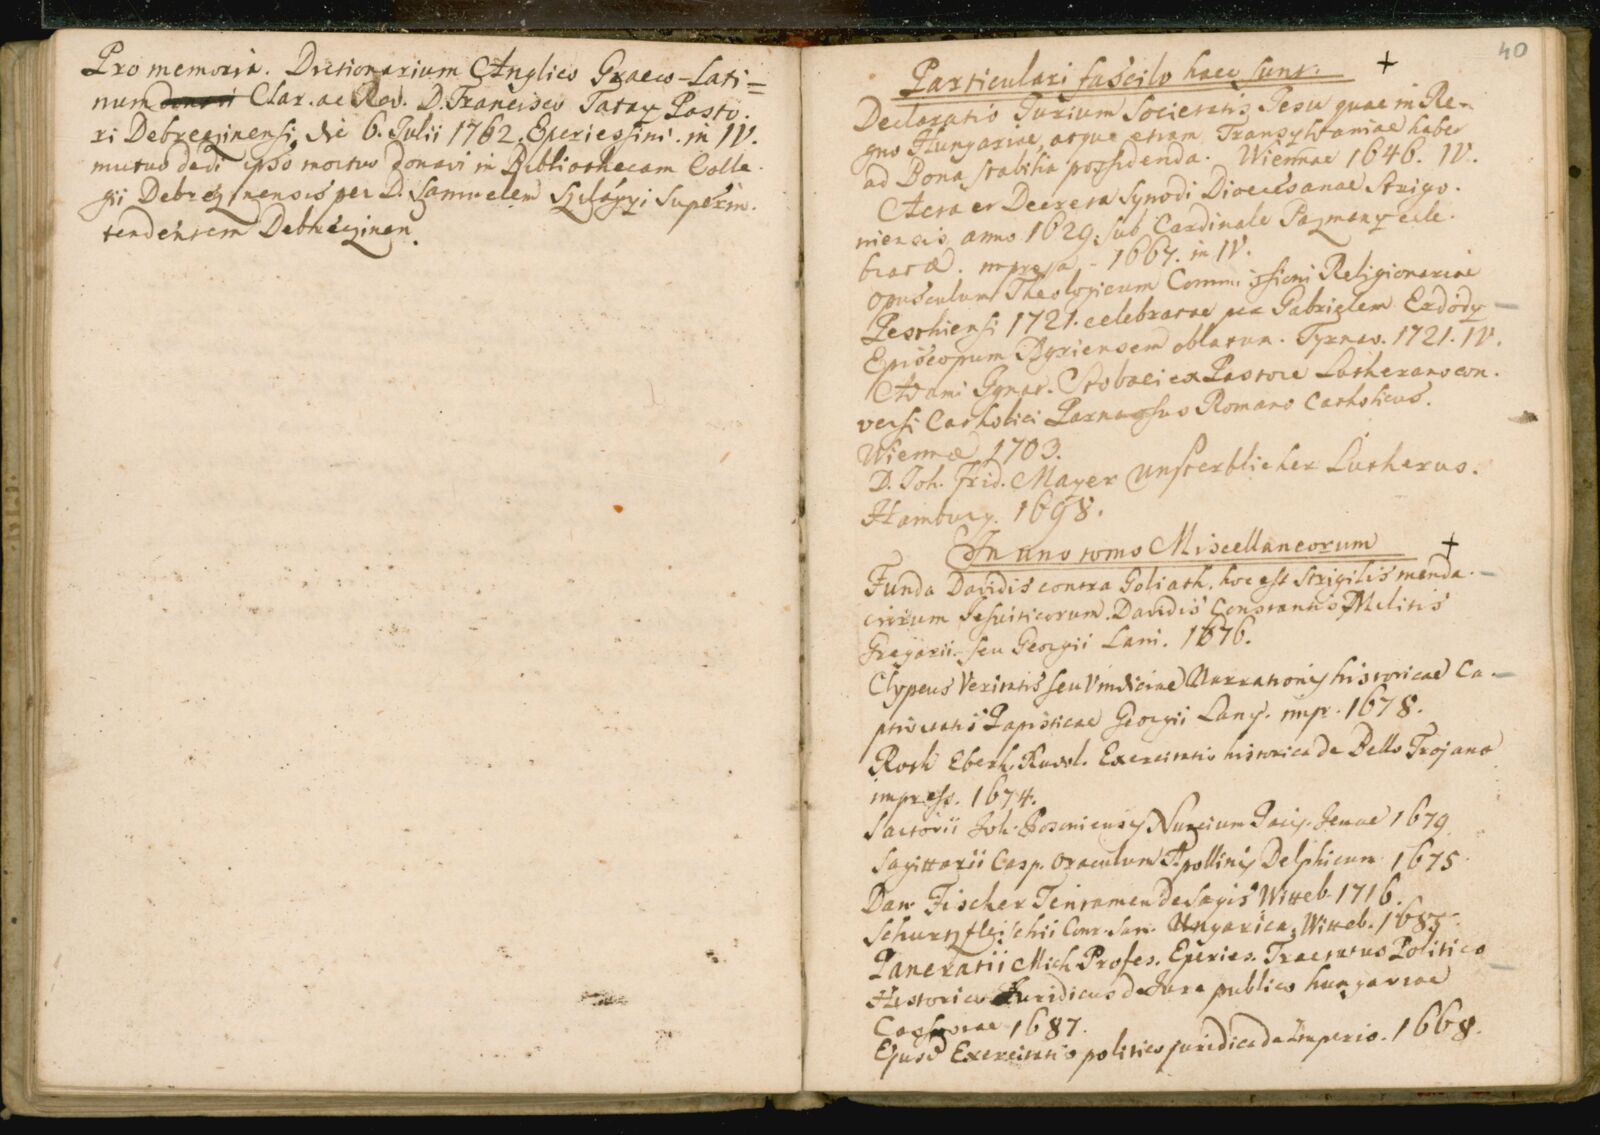 Pro memoria. Dictionarium Anglico Graeco-Lati=
num Clar. ac Rev. D. Francisco Tatay Pasto.
ri Debreczinensi, die 6. Julii 1762. Eperiessini. in IV.
mutuo dedi ipso mortuo donavi in Bibliothecam Colle.
gii Debreczinensis per D. Samuelem Szilágyi Superin.
tendentem Debreczinen.
40
Particulari fascilo haec sunt. +
Declaratio Jurium Societatis Jesu quae in Re-
gno Hungariae, atque etiam Transylvaniae habet
ad Bona stabilia possidenda. Wiennae 1646. IV.
Acta et Decreta Synodi Dioecesanae Strigo.
niensis anno 1629. sub Cardinale Pazmany cele.
bratae. impressa - 1667. in IV.
Opusculum Theologicum Commissioni Religionariae
Pesthiensi 1721. celebratae per Gabrielem Erdödy
Episcopum Agriensem oblatum. Tyrnav. 1721. IV.
Adami Gynat. Stobaei ex Pastore Lutherano con.
versi Catholici Parnassus Romano Catholicus.
Wiennae 1703.
D. Joh. Frid. Mayer Unsterblicher Lutherus.
Hamburg. 1698.
In uno tomo Miscellaneorum +
Funda Davidis contra Goliath. hoc est Strigilis menda.
ciorum Jesuiticorum. Davidis Constantis Militis
Gregarii. seu Georgii Lani. 1676.
Clypeus Veritatis seu Vindiciae Narrationis historicae Ca-
ptivitatis Papisticae Georgii Lany. impr. 1678.
Roth Eberh. Rudol. Exercitatio historica de Bello Trojano
impress. 1674.
Sartorii Joh. Posoniensis Nuncium Pacis. Jenae 1679
Sagittarii Casp. Oraculum Apollinis Delphicum 1675
Dan. Fischer Tentamen de Sagis Witteb. 1716.
Schurzfleischii Conr. Sam. Ungarica. Witteb.
Pancratii Mich. Profes. Eperies. Tractatus Politico
Historico Juridicus de Jure publico hungariae
Cassoviae 1687.
Ejusd Exercitatio politico juridica de Imperio. 1668.